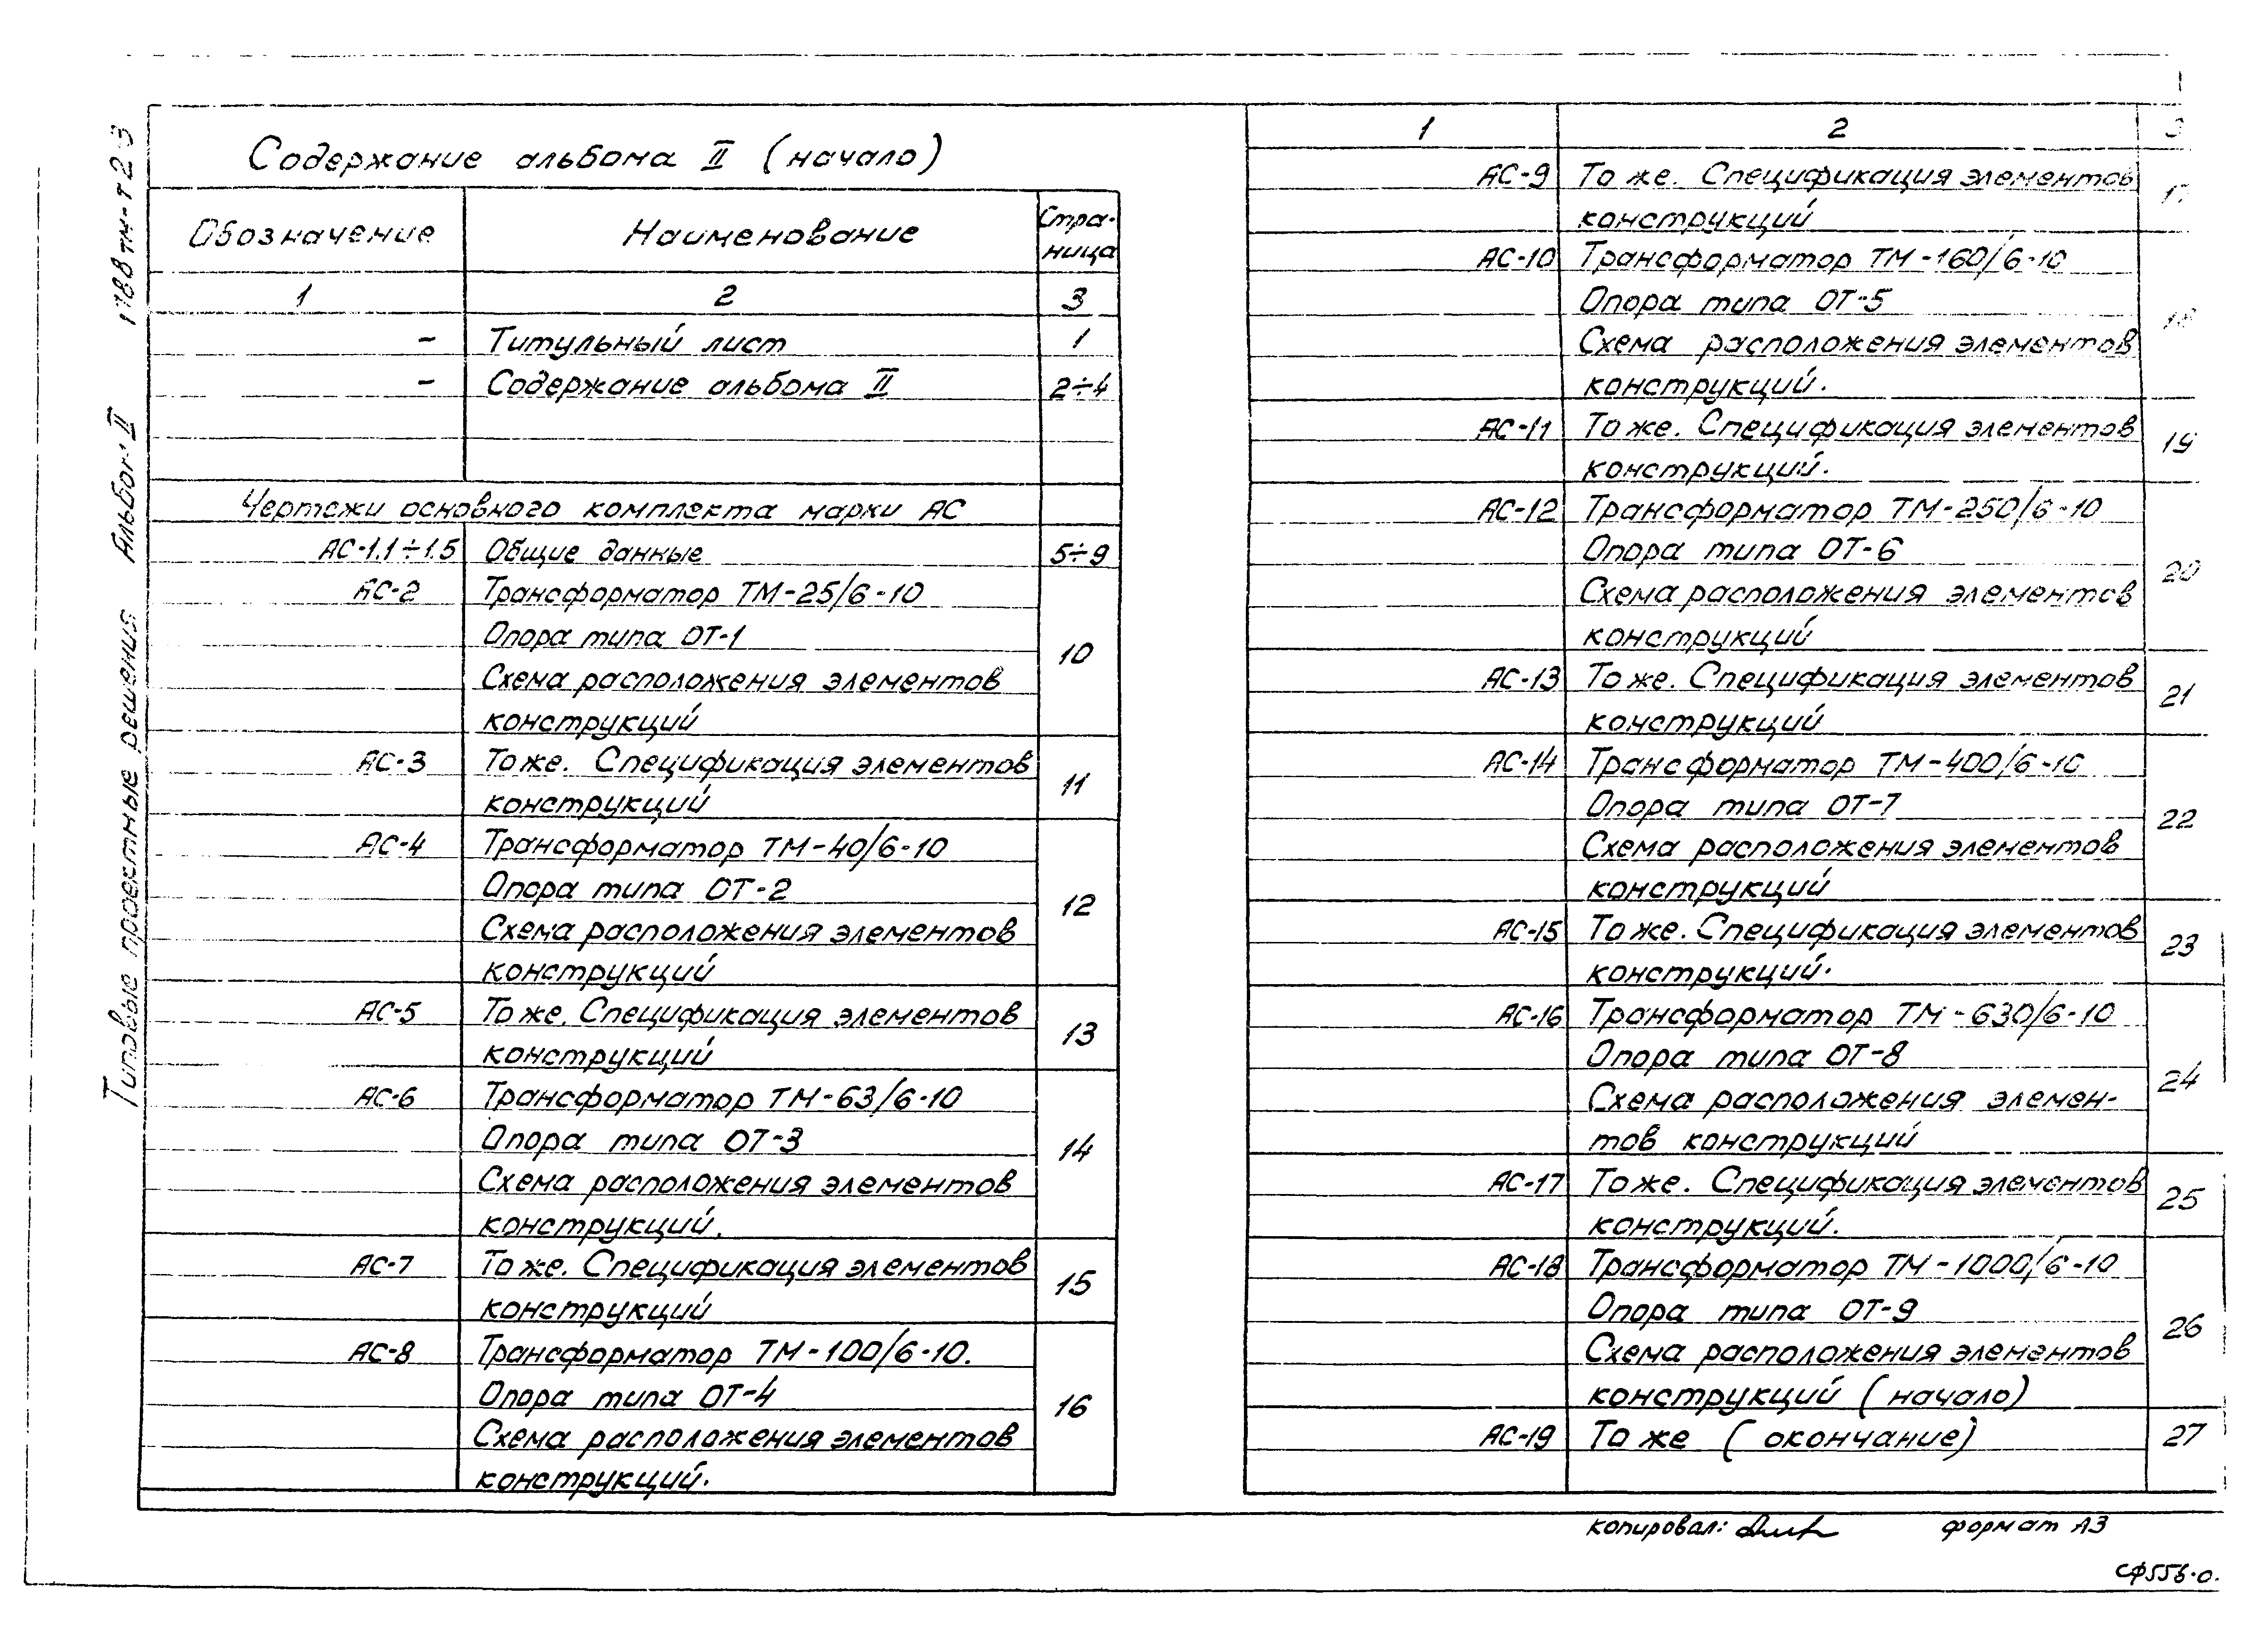 Типовые проектные решения Альбом II
Содержание альбома II (начало)
Обозначение Наименование Стра-
ница
1 2 3
- Титульный лист 1
- Содержание альбома II 2÷4
Чертежи основного комплекта марки АС
АС-1.1÷1.5 Общие данные 5÷9
АС-2 Трансформатор ТМ-25/6-10
Опора типа ОТ-1
10
Схема расположения элементов
конструкций
АС-3 То же. Спецификация элементов
11
конструкций
АС-4 Трансформатор ТМ-40/6-10
Опора типа ОТ-2
12
Схема расположения элементов
конструкций
АС-5 То же. Спецификация элементов
13
конструкций
АС-6 Трансформатор ТМ-63/6-10
Опора типа ОТ-3
14
Схема расположения элементов
конструкций.
АС-7 То же. Спецификация элементов
15
конструкций
АС-8 Трансформатор ТМ-100/6-10.
Опора типа ОТ-4
16
Схема расположения элементов
конструкций.
1 2 3
АС-9 То же. Спецификация элементов
17
конструкций
АС-10 Трансформатор ТМ-160/6-10
Опора типа ОТ-5
18
Схема расположения элементов
конструкций.
АС-11 То же. Спецификация элементов
19
конструкций.
АС-12 Трансформатор ТМ-250/6-10
Опора типа ОТ-6
20
Схема расположения элементов
конструкций
АС-13 То же. Спецификация элементов
21
конструкций
АС-14 Трансформатор ТМ-400/6-10
Опора типа ОТ-7
22
Схема расположения элементов
конструкций
АС-15 То же. Спецификация элементов
23
конструкций.
АС-16 Трансформатор ТМ-630/6-10
Опора типа ОТ-8
24
Схема расположения элемен-
тов конструкций
АС-17 То же. Спецификация элементов
25
конструкций.
АС-18 Трансформатор ТМ-1000/6-10
Опора типа ОТ-9
26
Схема расположения элементов
конструкций (начало)
АС-19 То же (окончание) 27
копировал: формат А3